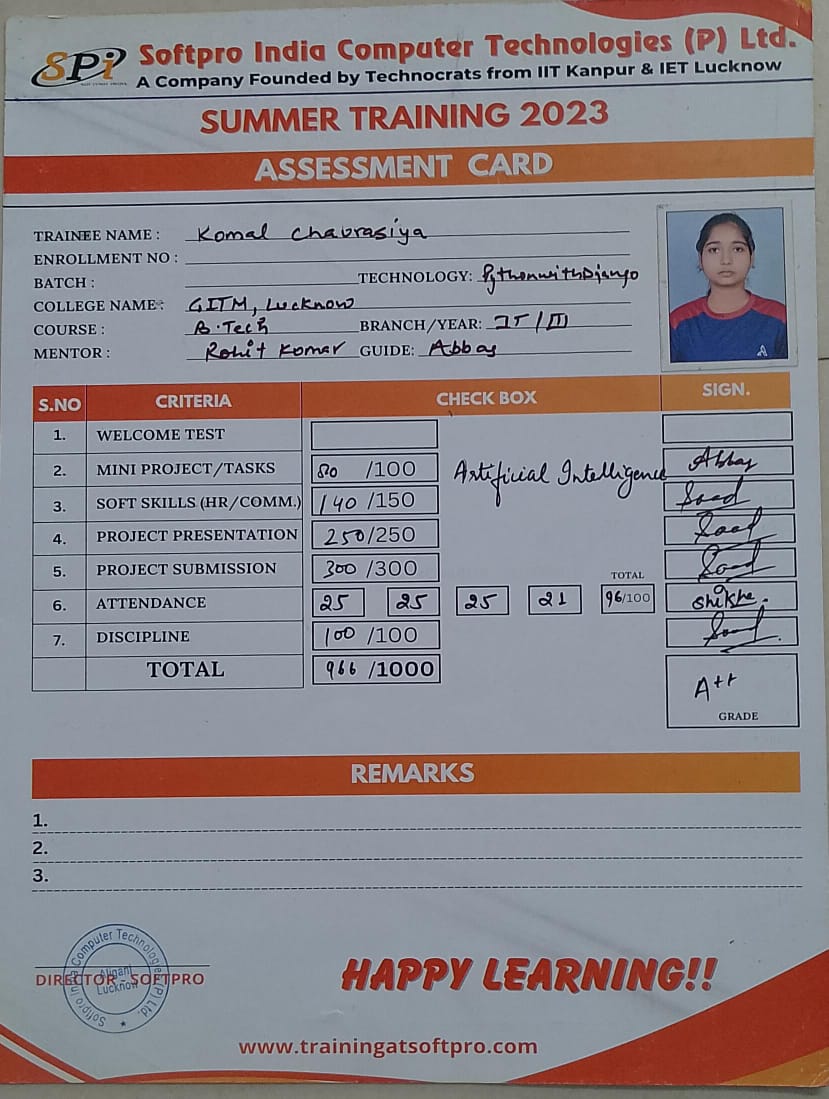 SPi Softpro India Computer Technologies (P) Ltd.
A Company Founded by Technocrats from IIT Kanpur & IET Lucknow
SUMMER TRAINING 2023
ASSESSMENT CARD
TRAINEE NAME : Komal Chaurasiya
ENROLLMENT NO :
BATCH : TECHNOLOGY: PythonwithDjango
COLLEGE NAME: GITM, Lucknow
COURSE : B.Tech BRANCH/YEAR: IT/III
MENTOR : Rohit Kumar GUIDE: Abbas
S.NO CRITERIA CHECK BOX SIGN.
1. WELCOME TEST
2. MINI PROJECT/TASKS 80 /100 Artificial Intelligence Abbas
3. SOFT SKILLS (HR/COMM.) 140 /150 Saad
4. PROJECT PRESENTATION 250/250 Saad
5. PROJECT SUBMISSION 300 /300 Saad
TOTAL
6. ATTENDANCE 25 25 25 21 96/100 Shikha.
7. DISCIPLINE 100 /100
TOTAL 966 /1000 A++
GRADE
REMARKS
1.
2.
3.
Softpro India Computer Technologies (P) Ltd.
Aliganj
Lucknow
DIRECTOR - SOFTPRO
HAPPY LEARNING!!
www.trainingatsoftpro.com